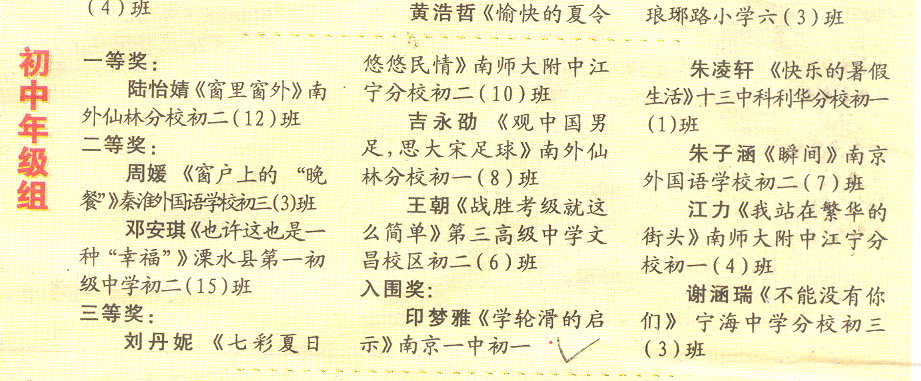 (4)班
黄浩哲《愉快的夏令
琅琊路小学六(3)班
初中年级组
一等奖：
陆怡婧《窗里窗外》南
外仙林分校初二(12)班
二等奖：
周媛 《窗户上的 “晚
餐”》秦淮外国语学校初三(3)班
邓安琪《也许这也是一
种“幸福”》溧水县第一初
级中学初二(15)班
三等奖：
刘丹妮 《七彩夏日
悠悠民情》南师大附中江
宁分校初二(10)班
吉永劭 《观中国男
足,思大宋足球》南外仙
林分校初一(8)班
王朝《战胜考级就这
么简单》第三高级中学文
昌校区初二(6)班
入围奖：
印梦雅《学轮滑的启
示》南京一中初一
朱凌轩 《快乐的暑假
生活》十三中科利华分校初一
(1)班
朱子涵《瞬间》南京
外国语学校初二(7)班
江力《我站在繁华的
街头》南师大附中江宁分
校初一(4)班
谢涵瑞《不能没有你
们》 宁海中学分校初三
(3)班